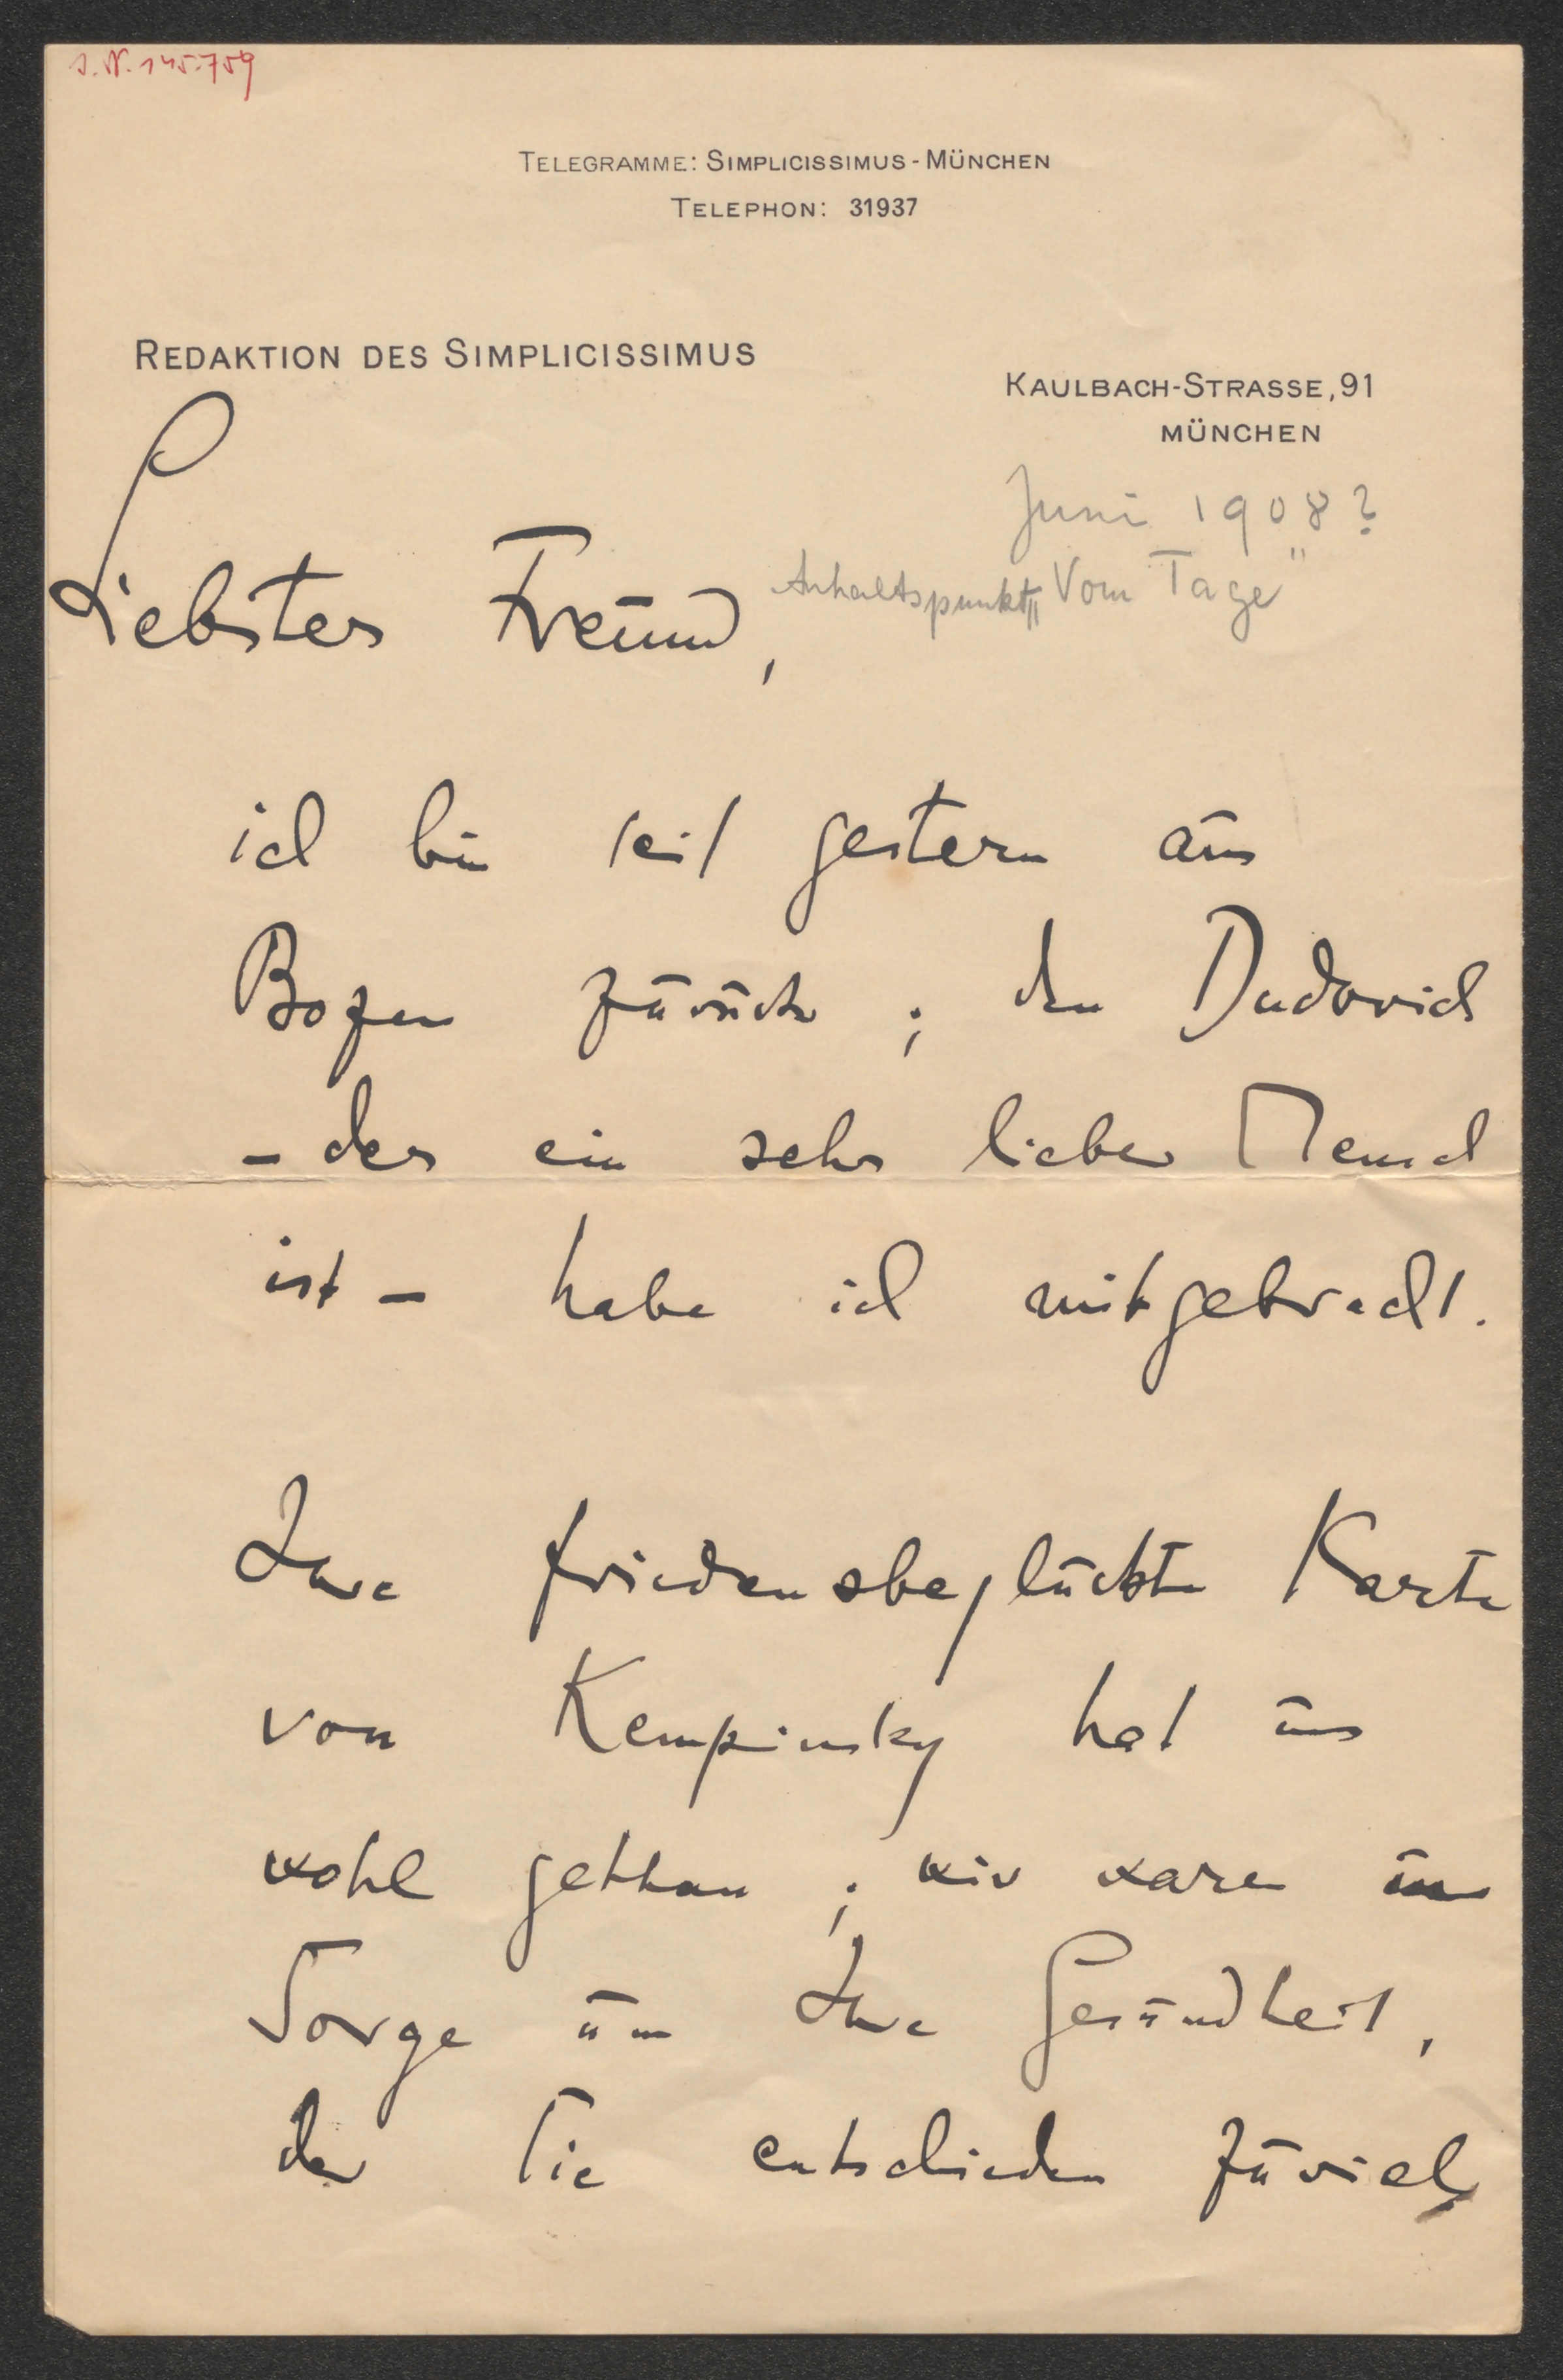 J.N. 145.759
TELEGRAMME: SIMPLICISSIMUS-MÜNCHEN
TELEPHON: 31937
REDAKTION DES SIMPLICISSIMUS
KAULBACH-STRASSE, 91
MÜNCHEN
Juni 1908?
Anhaltspunkt „Vom Tage"
Liebster Freund,
ich bin seit gestern aus
Bozen zurück; den Dudovich
- der ein sehr lieber Mensch
ist - habe ich mitgebracht.
Ihre friedensbeglückte Karte
von Kempinsky hat uns
wohl gethan; wir waren in
Sorge um Ihre Gesundheit,
der Sie entschieden zuviel